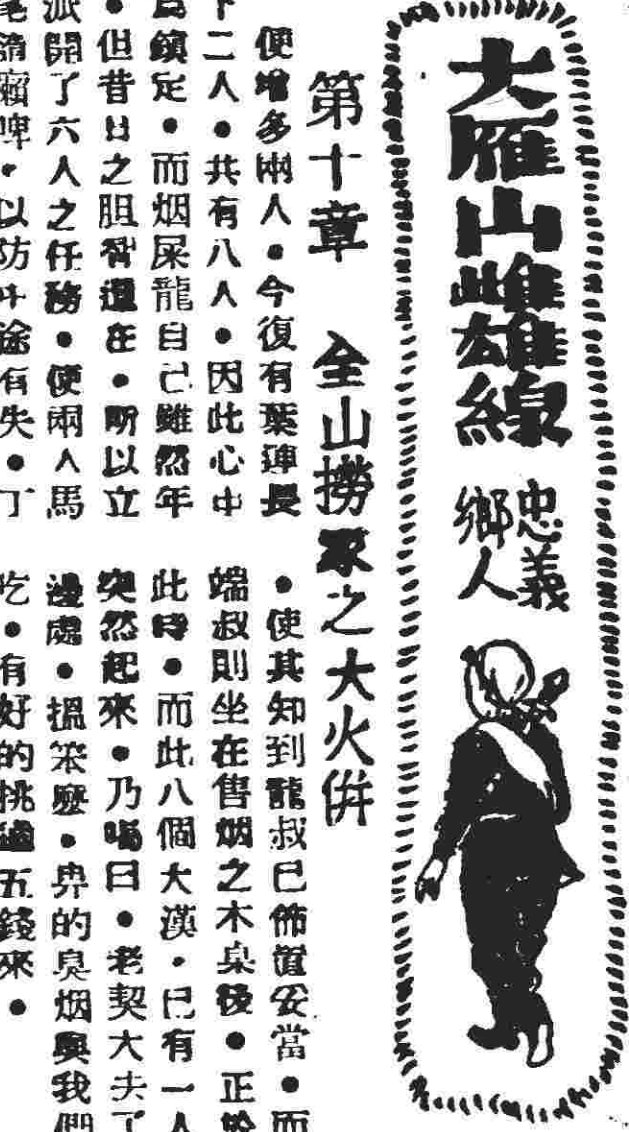 大雁山雌雄線
忠義
鄉人
第十章 全山撈家之大火併
便增多兩人●今復有葉連長
下二人●共有八人●因此心中
鎮定●而烟屎龍自己雖然年
●但昔日之胆智還在●所以立
派開了六人之任務●便兩人馬
尾●以防中途有失●丁
●使其知到龍叔已佈置妥當●而
端叔則坐在售烟之木桌後●正於
此時●而此八個大漢●已有一人
突然起來●乃喝曰●老契大夫了
處●搵笨●畀的臭烟與我們
吃●有好的挑過五錢來●